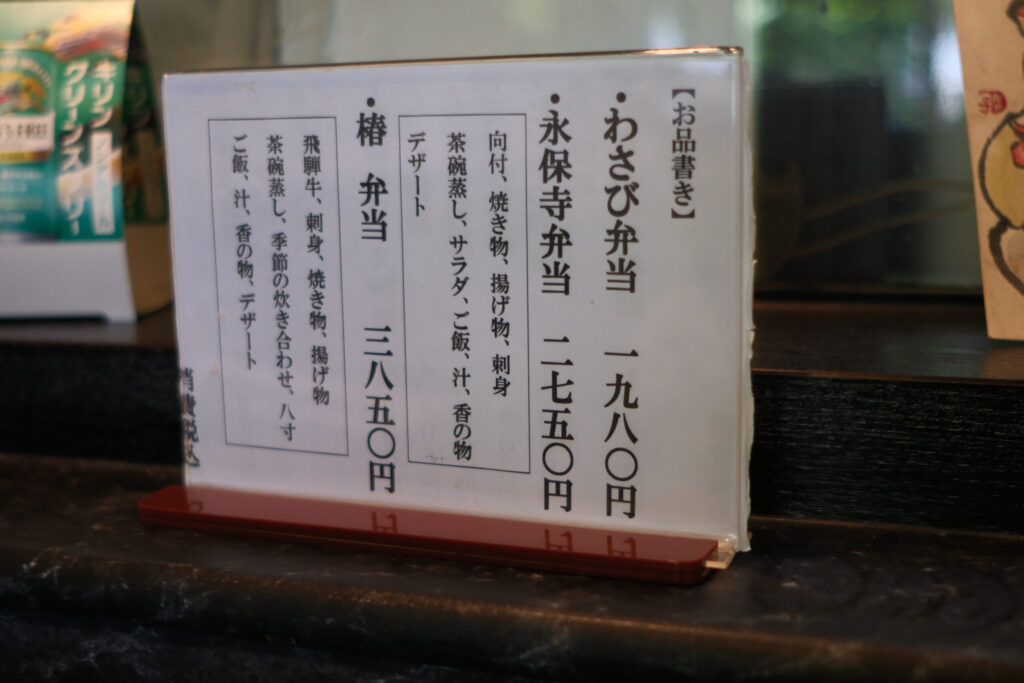 【お品書き】
・わさび弁当 一九八〇円
・永保寺弁当 二七五〇円
向付、焼き物、揚げ物、刺身
茶碗蒸し、サラダ、ご飯、汁、香の物
デザート
・椿 弁当 三八五〇円
飛騨牛、刺身、焼き物、揚げ物
茶碗蒸し、季節の炊き合わせ、八寸
ご飯、汁、香の物、デザート
消費税込
キリン
グリーンズフリー